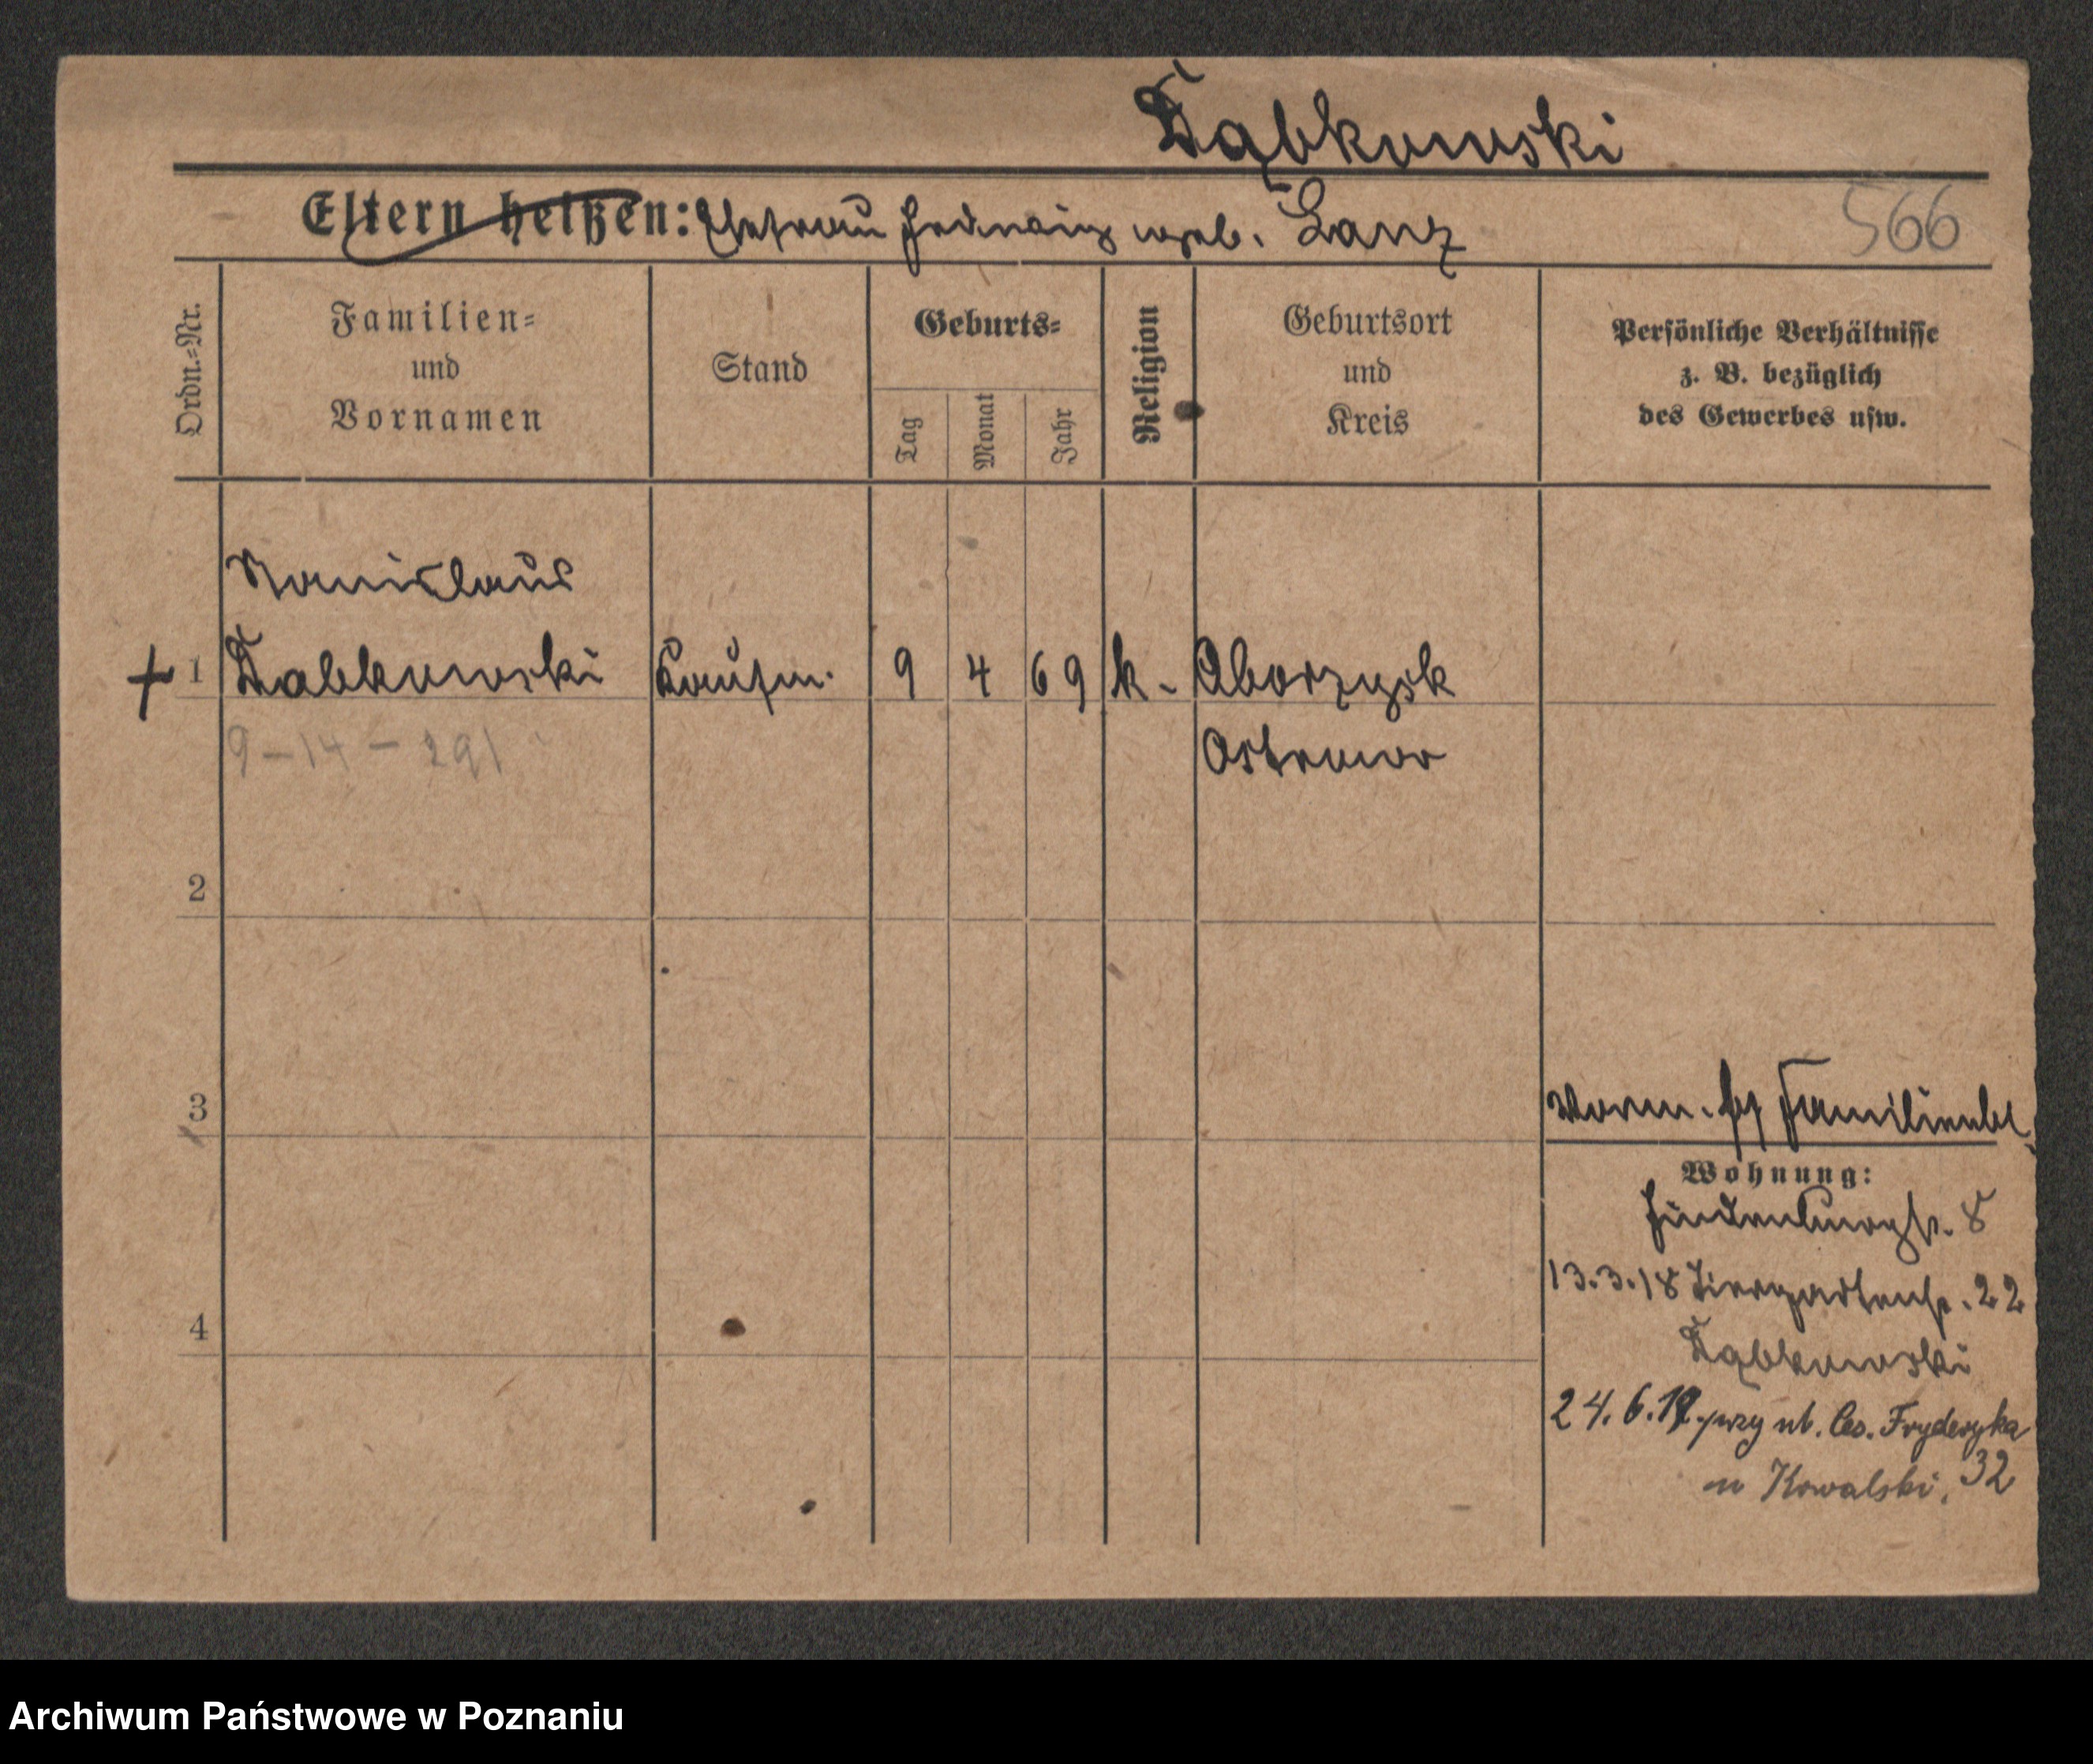 Dąbkowski
Eltern heißen: Ehefrau Hedwig geb. Lanz
566
Ordn.-Nr.
Familien-
und
Vornamen
Stand
Geburts-
Tag
Monat
Jahr
Religion
Geburtsort
und
Kreis
Persönliche Verhältnisse
z. B. bezüglich
des Gewerbes usw.
Stanislaus
+ 1 Dabkowski Kaufm. 9 4 69 k. Oborzysk
9-14-291
Ostrowo
2
3
Familienbl
Wohnung:
Hindenburgstr. 8
13.3.18 Tiergartenstr. 22
Dąbkowski
4
24.6.19. przy ul. Ces. Fryderyka
u Kowalski, 32
Archiwum Państwowe w Poznaniu